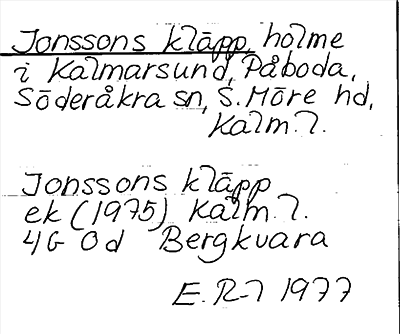 Jonssons kläpp, holme
i Kalmarsund, Påboda,
Söderåkra sn, S. Möre hd,
Kalm. l.
Jonssons kläpp
ek (1975) Kalm. l.
4G 0d Bergkvara
E. R-l 1977